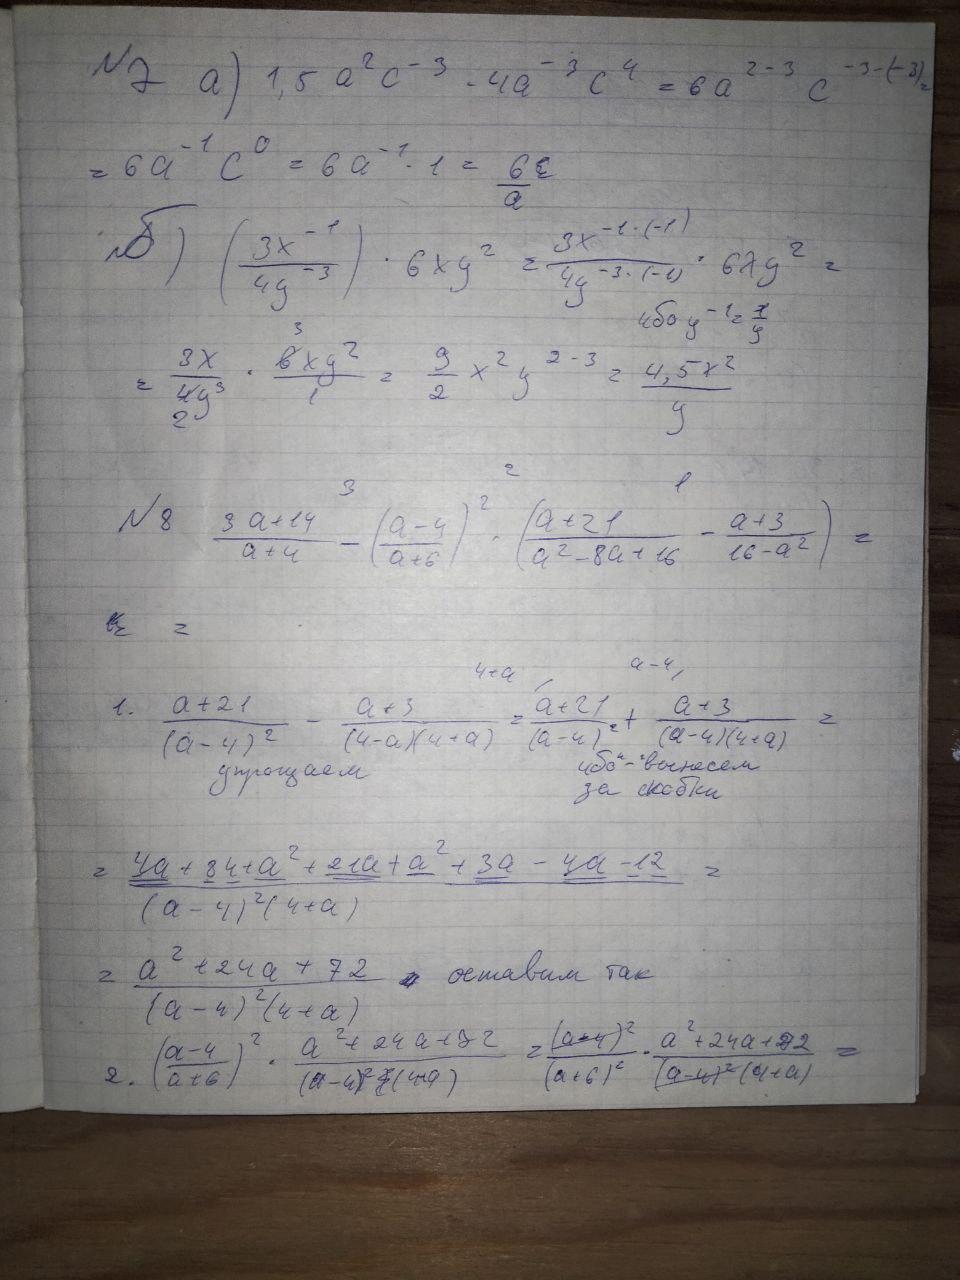 №7 а) 1,5 a²c⁻³ · 4a⁻³c⁴ = 6a²⁻³ c⁻³⁻⁽⁻³⁾ =
= 6a⁻¹ c⁰ = 6a⁻¹ · 1 = 6/a
б) (3x⁻¹/4y⁻³) · 6xy² = 3x⁻¹·⁽⁻¹⁾/4y⁻³·⁽⁻¹⁾ · 6xy² =
ибо y⁻¹ = 1/y
3
= 3x/4y³ · 6xy²/1 = 9/2 x² y²⁻³ = 4,5x²/y
2
3 2 1
№8 3a+14/a+4 − (a−4/a+6)² · (a+21/a²−8a+16 − a+3/16−a²) =
=
4+a, a−4,
1. a+21/(a−4)² − a+3/(4−a)(4+a) = a+21/(a−4)² + a+3/(a−4)(4+a) =
упрощаем ибо "-" вынесем
за скобки
= 4a+84+a²+21a+a²+3a−4a−12/(a−4)²(4+a) =
= a²+24a+72/(a−4)²(4+a) оставим так
2. (a−4/a+6)² · a²+24a+72/(a−4)²(4+a) = (a−4)²/(a+6)² · a²+24a+72/(a−4)²(4+a) =